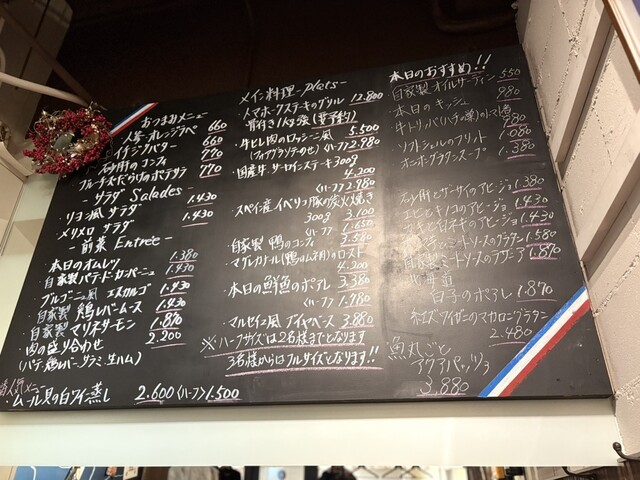 おつまみメニュー
人参・オレンジラペ 660
イチジクバター 660
砂肝のコンフィ 770
フルーツだらけのポテサラ 770
- サラダ Salades -
・リヨン風サラダ 1.430
・メリメロサラダ 1.430
- 前菜 Entrée -
・本日のオムレツ 1.380
・自家製パテ・ド・カンパーニュ 1.430
・ブルゴーニュ風エスカルゴ 1.430
・自家製鶏レバームース 1.430
・自家製マリネサーモン 1.870
・肉の盛り合わせ 2.200
(パテ、鶏レバー、サラミ、生ハム)
人気メニュー
・ムール貝の白ワイン蒸し 2.600〈ハーフ〉1.500
メイン料理 -plats-
・トマホークステーキのグリル 12.800
骨付き1kg強(要予約)
・牛ヒレ肉のロッシーニ風 5.500
(フォアグラソテーのせ)〈ハーフ〉2.980
・国産牛 サーロインステーキ300g
4.200
〈ハーフ〉2.980
・スペイン産 イベリコ豚の炭火焼き
300g 3.100
〈ハーフ〉1.650
・自家製 鴨のコンフィ 3.580
・マグレカナール(鴨のムネ肉)のロースト
4.200
・本日の鮮魚のポアレ 3.380
〈ハーフ〉1.780
・マルセイユ風 ブイヤベース 3.880
※ハーフサイズは2名様までとなります
3名様からはフルサイズとなります!!
本日のおすすめ!!
自家製オイルサーディン 550
本日のキッシュ 980
牛トリッパ(ハチノ巣)のトマト煮 980
ソフトシェルのフリット 1.080
オニオングラタンスープ 1.380
砂肝とザーサイのアヒージョ 1.380
エビとキノコのアヒージョ 1.430
アヒージョ 1.430
ミートソースのグラタン 1.580
自家製ミートソースのラザニア 1.870
北海道
白子のポアレ 1.870
紅ズワイガニのマカロニグラタン
2.480
魚丸ごと
アクアパッツァ
3.880